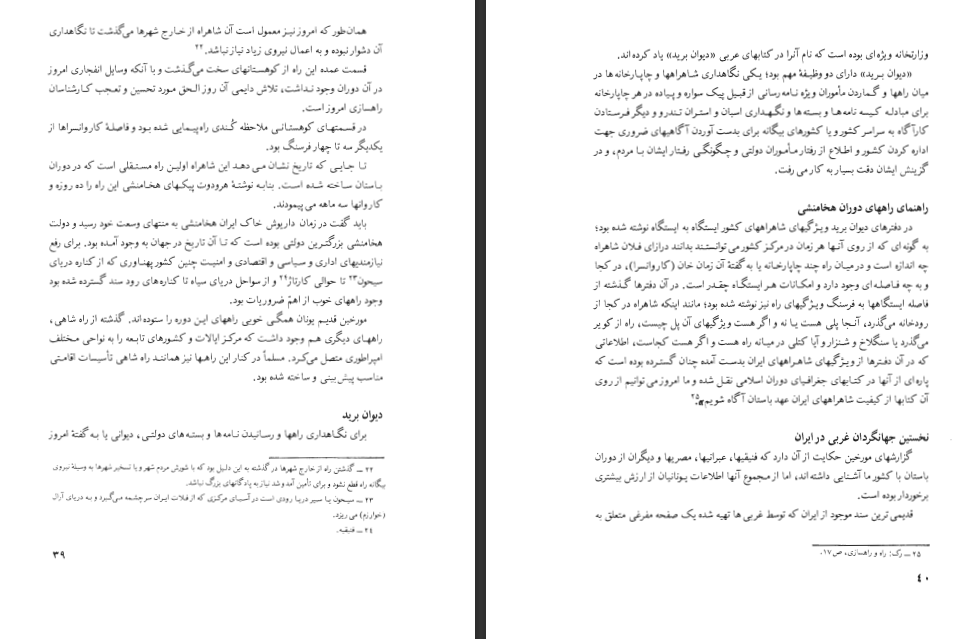 همان‌طور که امروز نیز معمول است آن شاهراه از خارج شهرها می‌گذشت تا نگاهداری
آن دشوار نبوده و به اعمال نیروی زیاد نیاز نباشد.۲۲
قسمت عمده این راه از کوهستانهای سخت می‌گذشت و با آنکه وسایل انفجاری امروز
در آن دوران وجود نداشت، تلاش دایمی آن روز الحق مورد تحسین و تعجب کارشناسان
راهسازی امروز است.
در قسمتهای کوهستانی ملاحظه کُندی راه‌پیمایی شده بود و فاصلهٔ کاروانسراها از
یکدیگر سه تا چهار فرسنگ بود.
تا جایی که تاریخ نشان می دهد این شاهراه اولین راه مستقلی است که در دوران
باستان ساخته شده است. بنابه نوشتهٔ هرودوت پیکهای هخامنشی این راه را ده روزه و
کاروانها سه ماهه می پیمودند.
باید گفت در زمان داریوش خاک ایران هخامنشی به منتهای وسعت خود رسید و دولت
هخامنشی بزرگترین دولتی بوده است که تا آن تاریخ در جهان به وجود آمده بود. برای رفع
نیازمندیهای اداری و سیاسی و اقتصادی و امنیت چنین کشور پهناوری که از کناره دریای
سیحون۲۳ تا حوالی کارتاژ۲۴ و از سواحل دریای سیاه تا کناره‌های رود سند گسترده شده بود
وجود راههای خوب از اهمّ ضروریات بود.
مورخین قدیم یونان همگی خوبی راههای این دوره را ستوده‌اند. گذشته از راه شاهی،
راههای دیگری هم وجود داشت که مرکز ایالات و کشورهای تابعه را به نواحی مختلف
امپراطوری متصل می‌کرد. مسلماً در کنار این راهها نیز همانند راه شاهی تأسیسات اقامتی
مناسب پیش‌بینی و ساخته شده بود.
دیوان برید
برای نگاهداری راهها و رسانیدن نامه‌ها و بسته‌های دولتی، دیوانی یا به گفتهٔ امروز
۲۲ ــ گذشتن راه از خارج شهرها در گذشته به این دلیل بود که با شورش مردم شهر و یا تسخیر شهرها به وسیلهٔ نیروی
بیگانه راه قطع نشود و برای تأمین آمد و شد نیاز به پادگانهای بزرگ نباشد.
۲۳ ــ سیحون یا سیر دریا رودی است در آسیای مرکزی که از فلات ایران سرچشمه می‌گیرد و به دریای آرال
(خوارزم) می ریزد.
۲۴ ــ فنیقیه.
۳۹
وزارتخانه ویژه‌ای بوده است که نام آنرا در کتابهای عربی «دیوان برید» یاد کرده‌اند.
«دیوان برید» دارای دو وظیفهٔ مهم بود؛ یکی نگاهداری شاهراهها و چاپارخانه‌ها در
میان راهها و گماردن مأموران ویژه نامه‌رسانی از قبیل پیک سواره و پیاده در هر چاپارخانه
برای مبادله کیسه نامه‌ها و بسته‌ها و نگهداری اسبان و استران تندرو و دیگر فرستادن
کارآگاه به سراسر کشور و یا کشورهای بیگانه برای بدست آوردن آگاهیهای ضروری جهت
اداره کردن کشور و اطلاع از رفتار مأموران دولتی و چگونگی رفتار ایشان با مردم، و در
گزینش ایشان دقت بسیار به کار می رفت.
راهنمای راههای دوران هخامنشی
در دفترهای دیوان برید ویژگیهای شاهراههای کشور ایستگاه به ایستگاه نوشته شده بود؛
به گونه‌ای که از روی آنها هر زمان در مرکز کشور می‌توانستند بدانند درازای فلان شاهراه
چه اندازه است و در میان راه چند چاپارخانه یا به گفتهٔ آن زمان خان (کاروانسرا)، در کجا
و به چه فاصله‌ای وجود دارد و امکانات هر ایستگاه چقدر است. در آن دفترها گذشته از
فاصله ایستگاهها به فرسنگ ویژگیهای راه نیز نوشته شده بود؛ مانند اینکه شاهراه در کجا از
رودخانه می‌گذرد، آنجا پلی هست یا نه و اگر هست ویژگیهای آن پل چیست، راه از کویر
می‌گذرد یا سنگلاخ و شنزار و آیا کتلی در میانه راه هست و اگر هست کجاست، اطلاعاتی
که در آن دفترها از ویژگیهای شاهراههای ایران بدست آمده چنان گسترده بوده است که
پاره‌ای از آنها در کتابهای جغرافیای دوران اسلامی نقل شده و ما امروز می توانیم از روی
آن کتابها از کیفیت شاهراههای ایران عهد باستان آگاه شویم».۲۵
نخستین جهانگردان غربی در ایران
گزارشهای مورخین حکایت از آن دارد که فنیقیها، عبرانیها، مصریها و دیگران از دوران
باستان با کشور ما آشنایی داشته‌اند، اما از مجموع آنها اطلاعات یونانیان از ارزش بیشتری
برخوردار بوده است.
قدیمی ترین سند موجود از ایران که توسط غربی ها تهیه شده یک صفحه مفرغی متعلق به
۲۵ ــ رک: راه و راهسازی، ص ۱۷.
۴۰